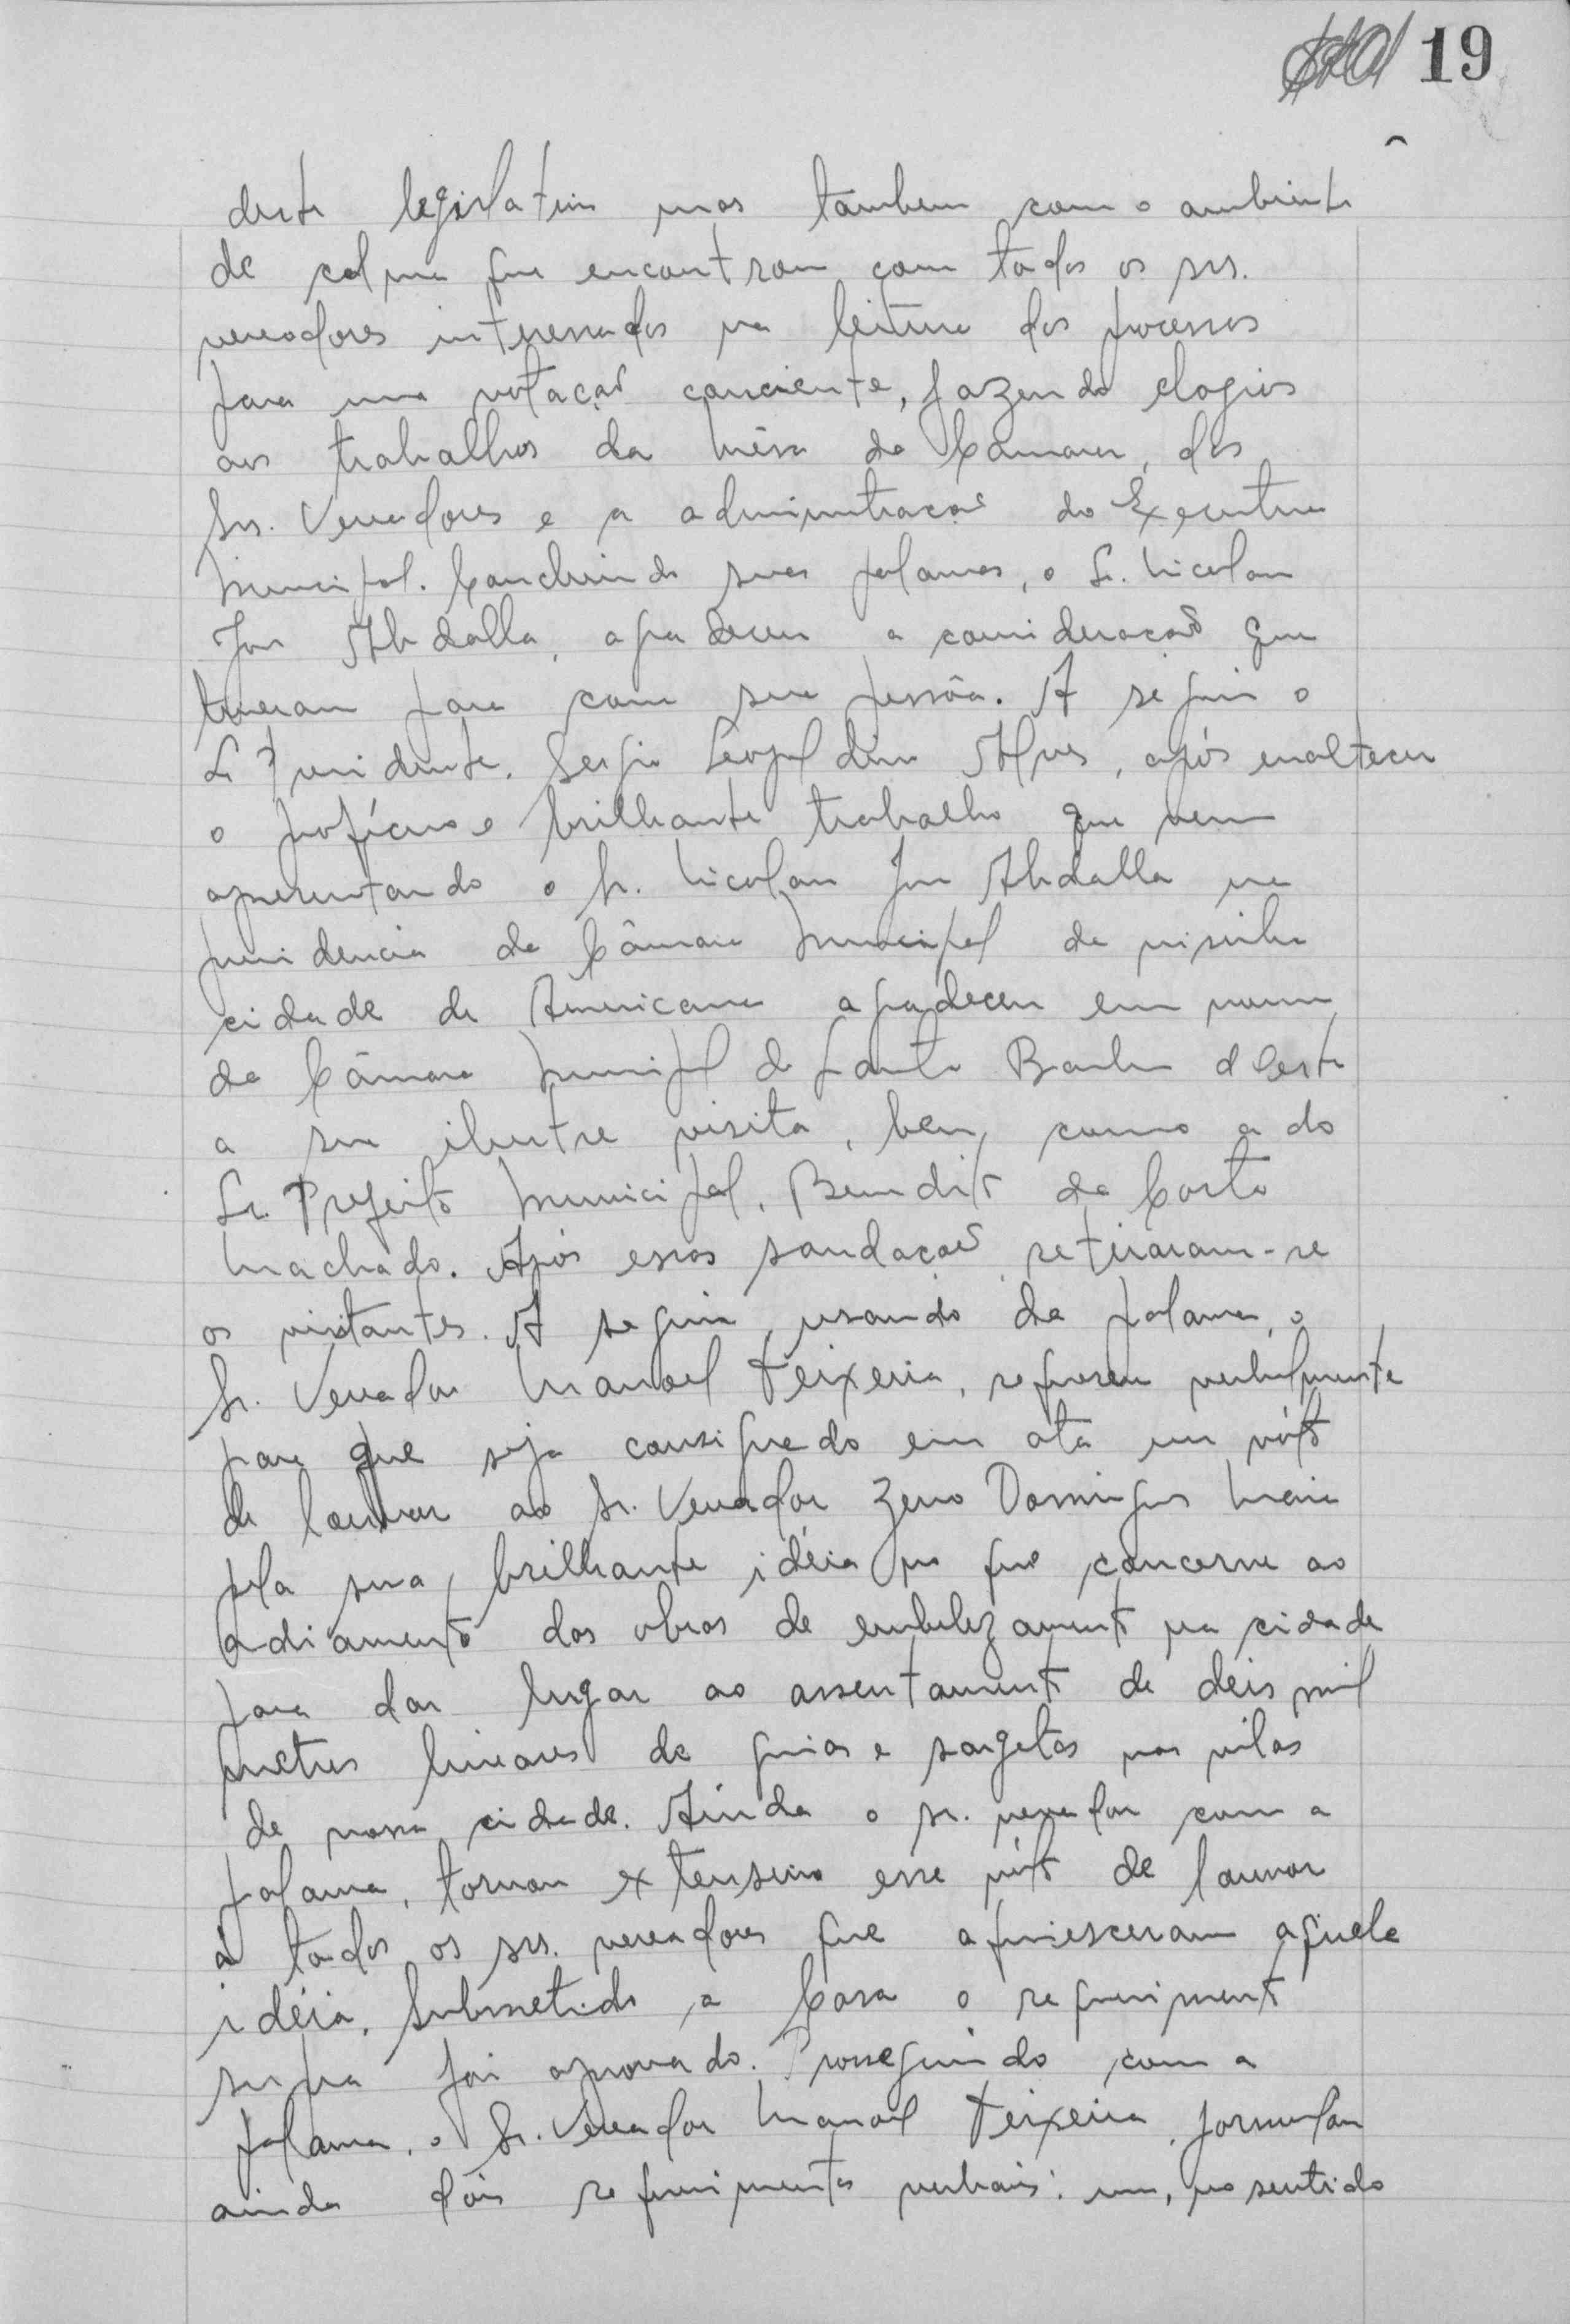 19
deste legislativo mas tambem com o ambiente
de calma que encontrou com todos os srs.
vereadores interessados na leitura dos processos
para uma votação conciente, fazendo elogios
aos trabalhos da mêsa da Câmara, dos
Srs. Vereadores e a administração do Executivo
Municipal. Concluindo suas palavras, o Sr. Nicolau
Jon Abdalla, agradeceu a consideração que
tiveram para com sua pessôa. A seguir o
Sr Presidente, Sergio Leopoldino Alves, após enaltecer
o profícuo e brilhante trabalho que vem
apresentando o Sr. Nicolau Jon Abdalla na
presidencia da Câmara Municipal da visinha
cidade de Americana agradeceu em nome
da Câmara Municipal de Santa Barbara d'Oeste
a sua ilustre visita, bem como a do
Sr. Prefeito Municipal, Benedito da Costa
Machado. Após essas saudações retiraram-se
os visitantes. A seguir, usando da palavra, o
Sr. Vereador Manoel Teixeira, requereu verbalmente
para que seja consignado em ata um vóto
de louvor ao Sr. Vereador Zeno Domingues Maia
pela sua brilhante idéia no que concerne ao
adiamento das obras de embelezamento na cidade
para dar lugar ao assentamento de dois mil
metros lineares de guias e sargetas nas vilas
de nossa cidade. Ainda o sr. vereador com a
palavra, tornou extensivo esse vóto de louvor
à todos os srs. vereadores que aquiesceram aquela
idéia. Submetido a Casa o requerimento
supra foi aprovado. Prosseguindo com a
palavra, o Sr. Vereador Manoel Teixeira, formulou
ainda dois requerimentos verbais: um, no sentido